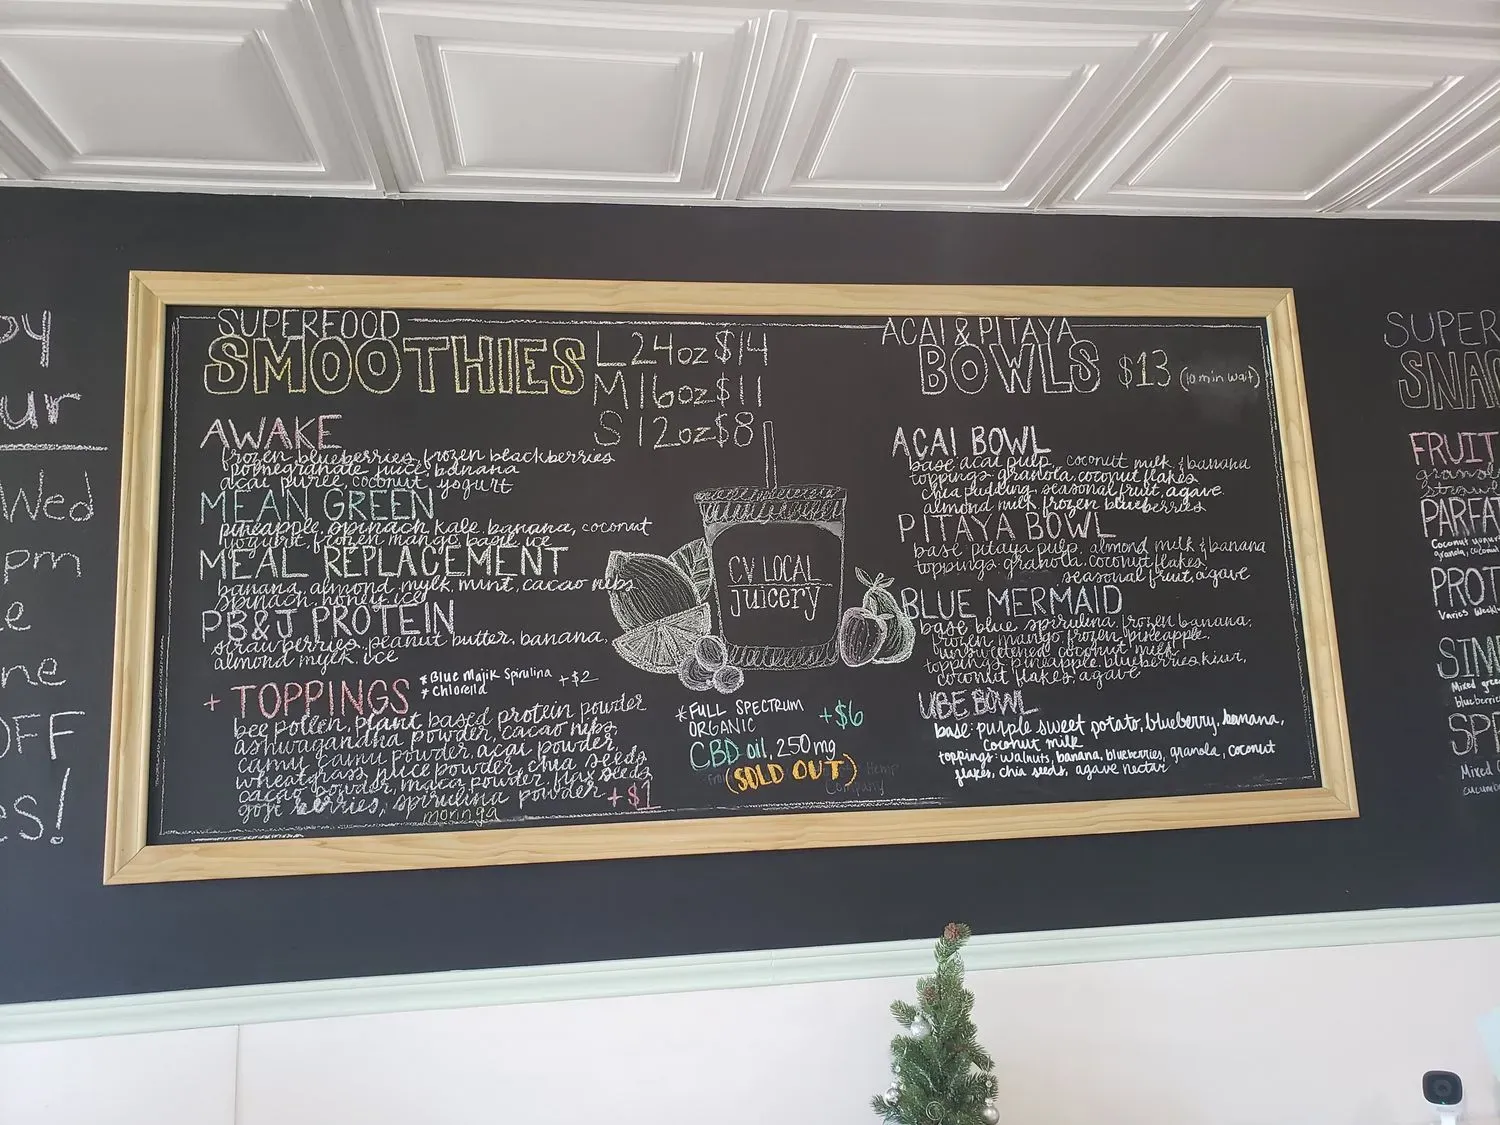 SUPERFOOD
SMOOTHIES
L 24oz $14
M 16oz $11
S 12oz $8
AWAKE
frozen blueberries, frozen blackberries
pomegranate juice, banana
acai puree, coconut yogurt
MEAN GREEN
pineapple, spinach, kale, banana, coconut
yogurt, frozen mango, basil, ice
MEAL REPLACEMENT
banana, almond mylk, mint, cacao nibs
spinach, honey, ice
PB&J PROTEIN
strawberries, peanut butter, banana,
almond mylk, ice
+ TOPPINGS
*Blue Majik Spirulina +$2
*Chlorella
bee pollen, plant based protein powder
ashwagandha powder, cacao nibs,
camu camu powder, acai powder,
wheatgrass juice powder, chia seeds
cacao powder, maca powder, flax seeds
goji berries, spirulina powder +$1
moringa
CV LOCAL
juicery
*FULL SPECTRUM
ORGANIC +$6
CBD oil, 250mg
(SOLD OUT)
Hemp
Company
ACAI & PITAYA
BOWLS $13 (10 min wait)
ACAI BOWL
base: acai pulp, coconut milk & banana
toppings: granola, coconut flakes
chia pudding, seasonal fruit, agave
almond milk, frozen blueberries
PITAYA BOWL
base: pitaya pulp, almond milk & banana
toppings: granola, coconut flakes,
seasonal fruit, agave
BLUE MERMAID
base: blue spirulina, frozen banana,
frozen mango, frozen pineapple,
unsweetened coconut milk
toppings: pineapple, blueberries, kiwi,
coconut flakes, agave
UBE BOWL
base: purple sweet potato, blueberry, banana,
coconut milk
toppings: walnuts, banana, blueberries, granola, coconut
flakes, chia seeds, agave nectar
py
ur
Wed
pm
e
ne
OFF
es!
SUPER
SNA
FRUIT
PARFA
granola, coconut
PROT
Varies weekly
SIM
Mixed gree
blueberrie
SP
Mixed
cucumb